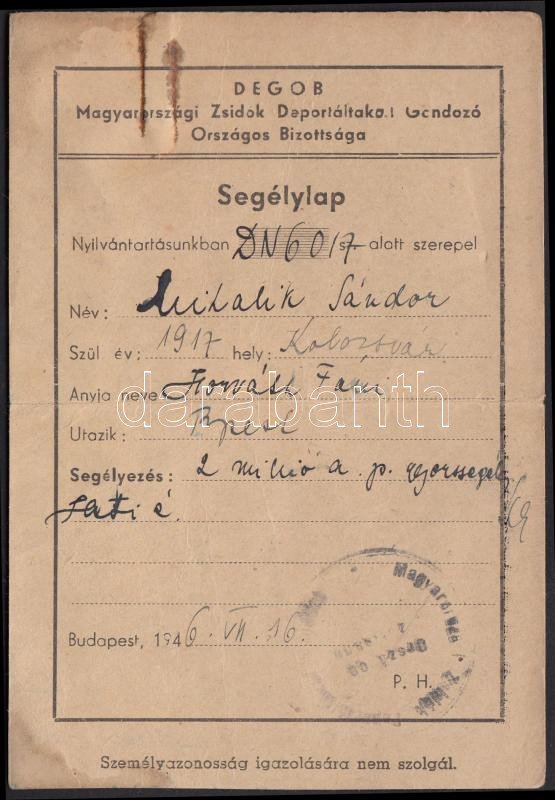 DEGOB
Magyarországi Zsidók Deportáltakat Gondozó
Országos Bizottsága
Segélylap
Nyilvántartásunkban DN6017 sz. alatt szerepel
Név: Mihalik Sándor
Szül év: 1917 hely: Kolozsvár
Anyja neve Horváth Fani
Utazik: Bpest
Segélyezés: 2 millió a. p. gyorssegély
darabanth
Budapest, 1946. VII. 16.
P. H.
Személyazonosság igazolására nem szolgál.